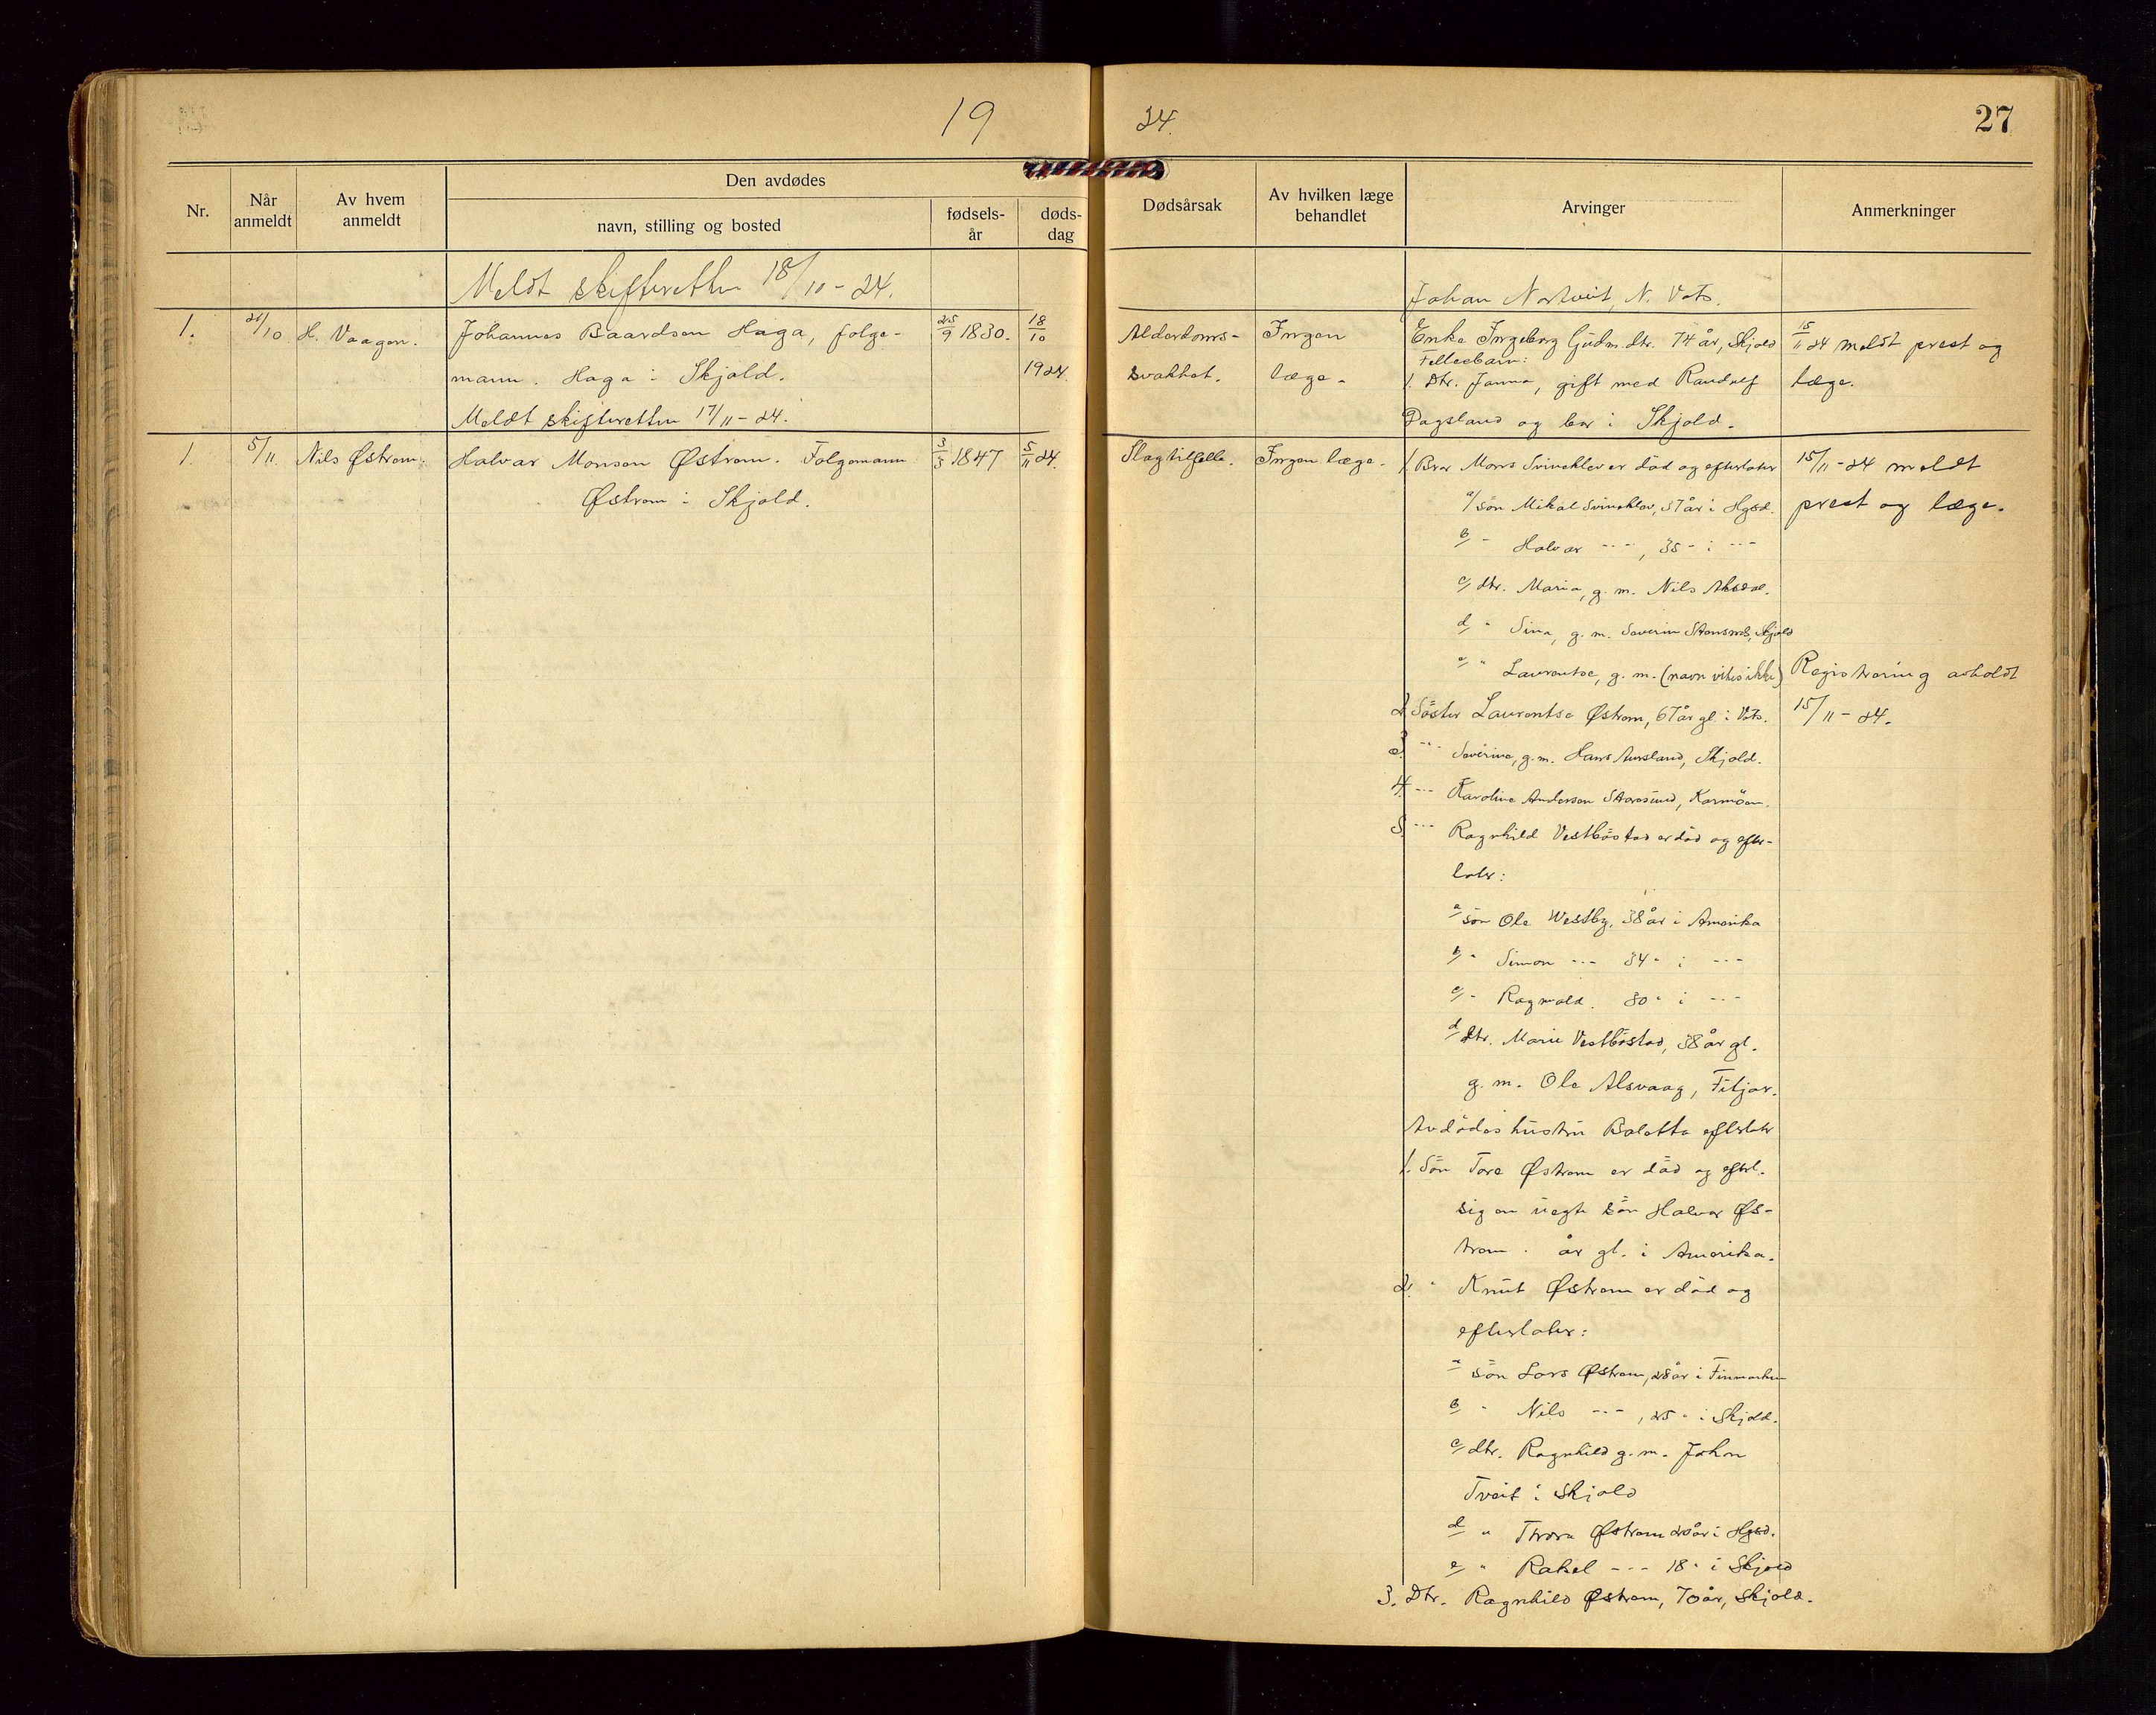 19 24.
27
Nr.
Når anmeldt
Av hvem anmeldt
Den avdødes
navn, stilling og bosted
fødsels-år
døds-dag
Dødsårsak
Av hvilken læge behandlet
Arvinger
Anmerkninger
Meldt skifteretten 18/10 - 24.
Johan Nortveit, N. Vats.
1. 21/10 H. Vaagen. Johannes Baardsen Haga, folge-
mann. Haga i Skjold.
Meldt skifteretten 17/11 - 24.
25/9 1830. 18/10
1924.
Alderdoms-
svakhet.
Ingen
læge.
Enke Ingeborg Gudm.dtr. 74 år, Skjold
Fellesbarn:
1. Dtr. Janna, gift med Randulf
Dagsland og bor i Skjold.
15/11 24 meldt prest og
læge.
1. 5/11. Nils Østrem. Halvar Monsen Østrem. Folgemann
Østrem i Skjold.
3/3 1847 5/11 24.
Slagtilfelle. Ingen læge.
1. Bror Mons Svineklev er död og efterlater
a/ sön Mikal Svineklev, 37 år i Hgsd.
b/ - Halvar --- , 35 - i ---
c/ dtr. Maria, g. m. Nils Aksdal.
d/ " Sina, g. m. Severin Stensnes, Skjold
e/ " Laurentse, g. m. (navn vites ikke)
2. Söster Laurentse Østrem, 67 år gl. i Vats.
3. --- Severine, g. m. Hans Aursland, Skjold.
4. --- Karoline Andersen Storesund, Karmöen.
5. --- Ragnhild Vestböstad er död og efter-
later:
a/ sön Ole Westby, 38 år i Amerika
b/ - Simon --- 34 - i ---
c/ - Ragnvald. 30 - i ---
d/ dtr. Marie Vestböstad, 38 år gl.
g. m. Ole Alsvaag, Fitjar.
Avdödes hustru Boletta efterlater
1. Sön Tore Østrem er död og efterl.
sig en uegte sön Halvar Øs-
trem. år gl. i Amerika.
2. " Knut Østrem er död og
efterlater:
a/ sön Lars Østrem, 28 år i Finmarken
b/ " Nils --- , 25 - i Skjold.
c/ dtr. Ragnhild g. m. Johan
Tveit i Skjold
d/ " Thora Østrem 20 år i Hgsd.
e/ " Rakel --- 18 " i Skjold
3. Dtr. Ragnhild Østrem, 70 år, Skjold.
15/11 - 24 meldt
prest og læge.
Registrering avholdt
15/11 - 24.